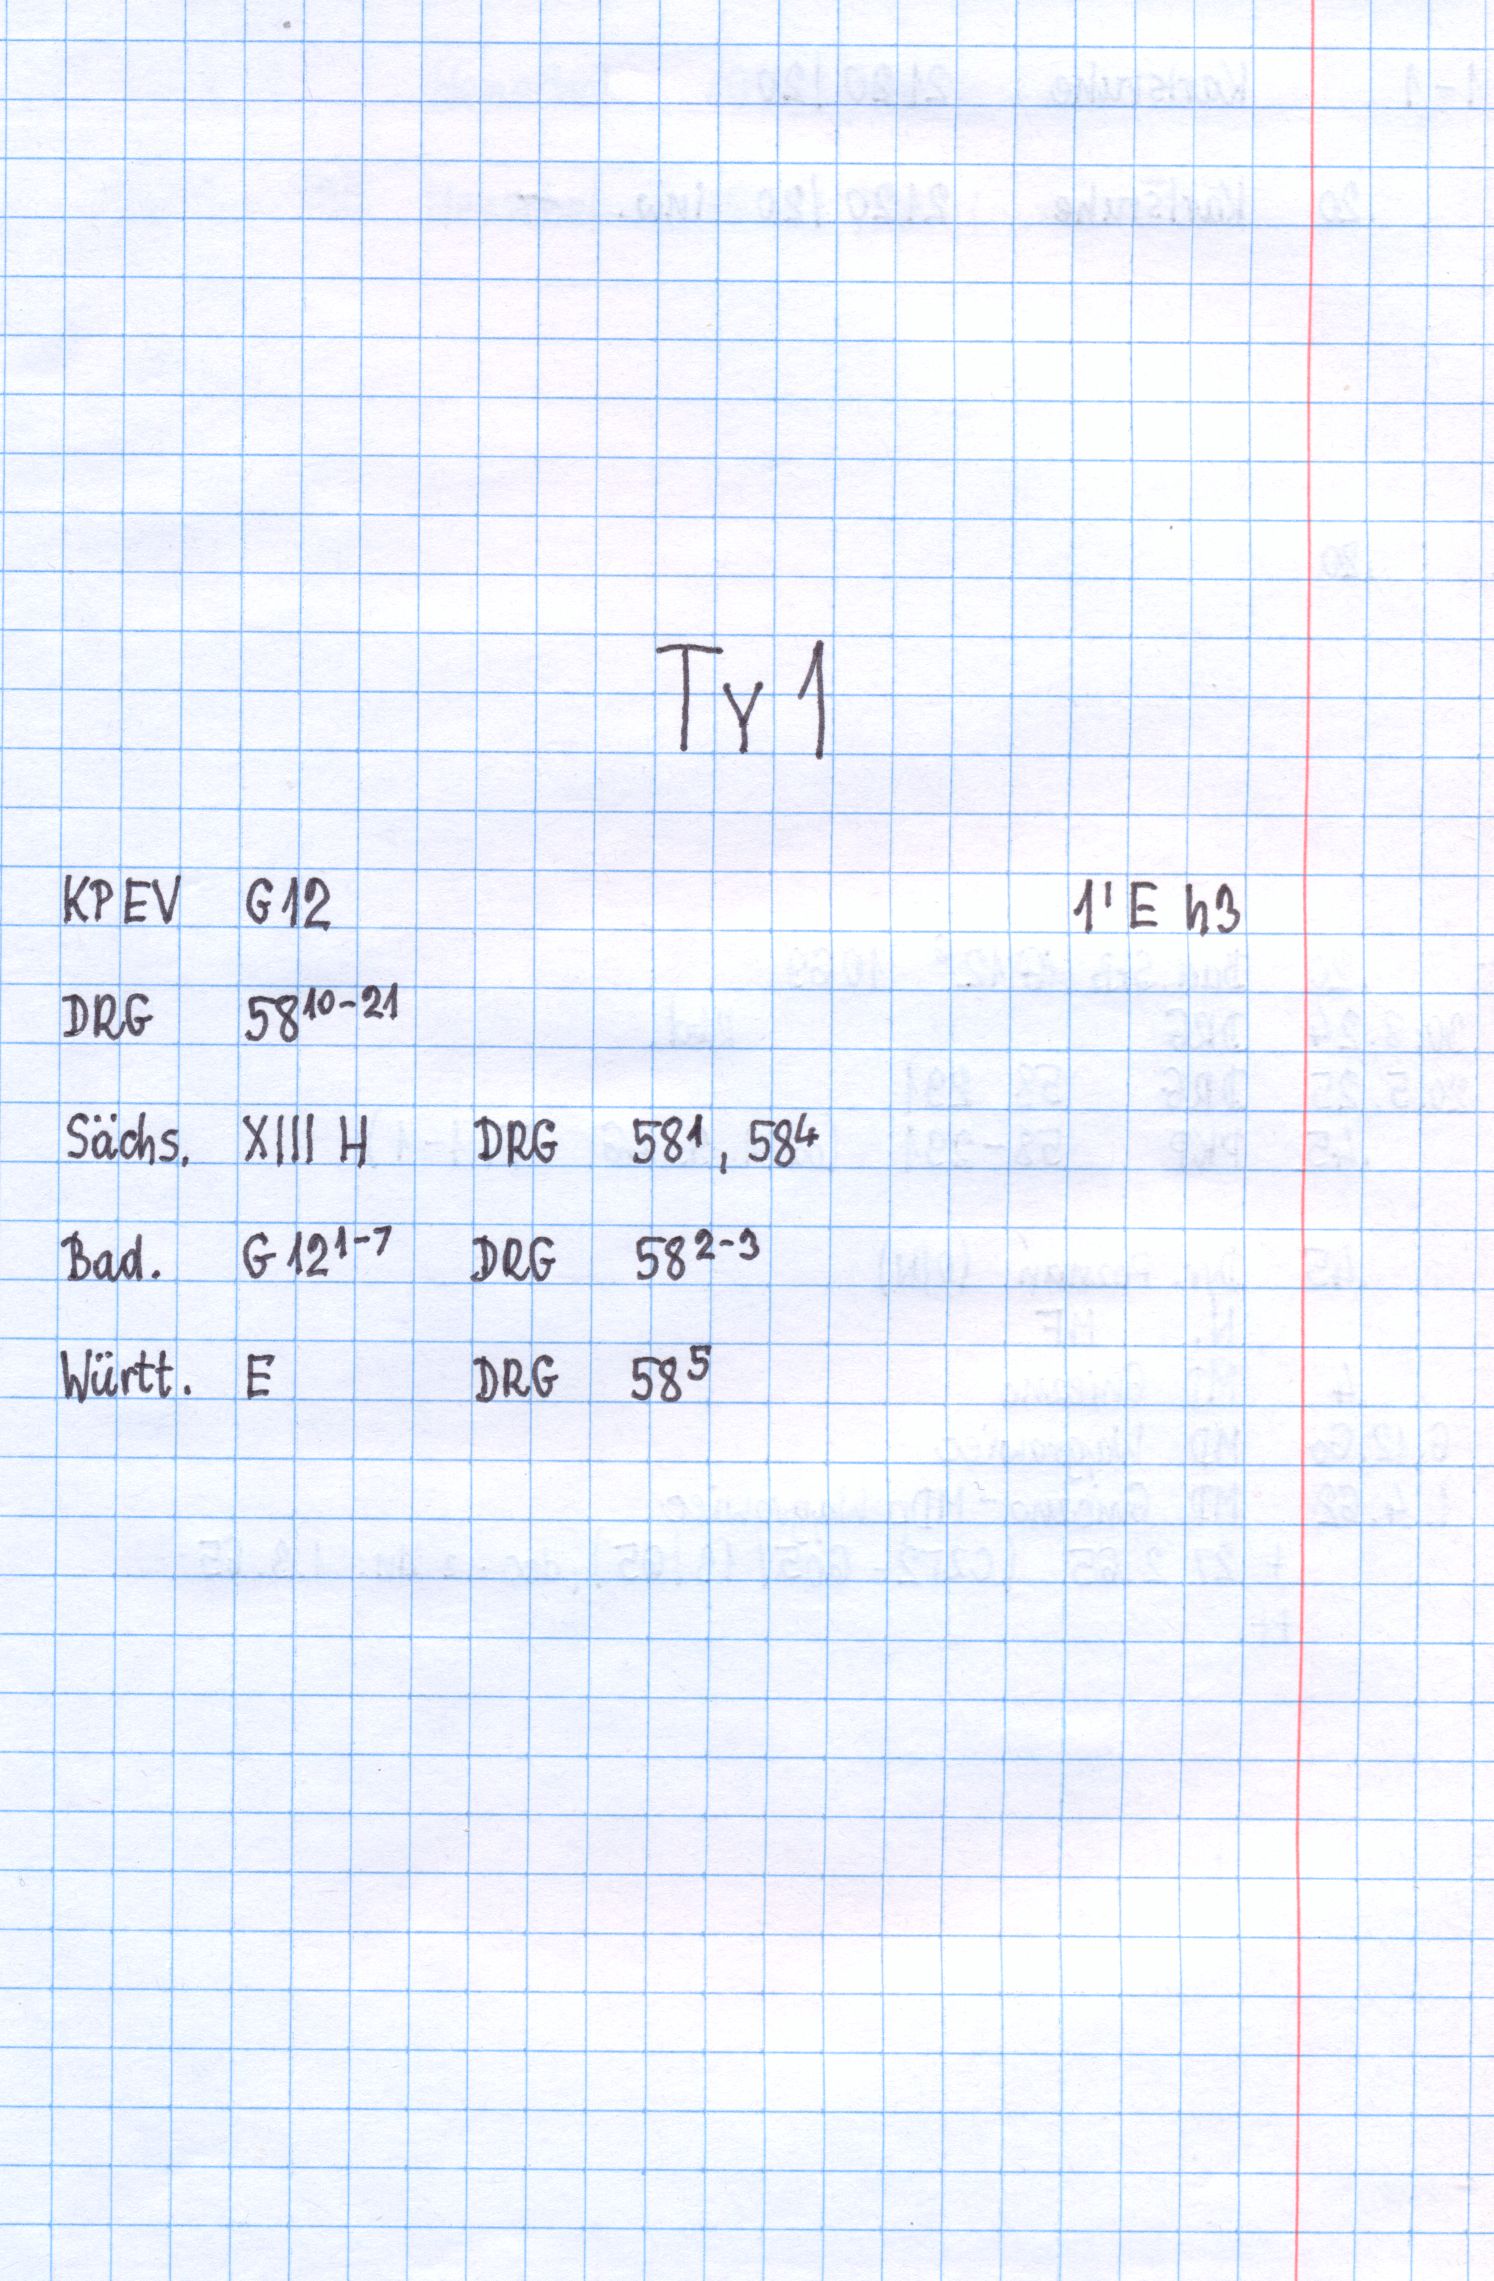 Ty 1
KPEV G12 1'E h3
DRG 58¹⁰⁻²¹
Sächs. XIII H DRG 58¹, 58⁴
Bad. G 12¹⁻⁷ DRG 58²⁻³
Württ. E DRG 58⁵